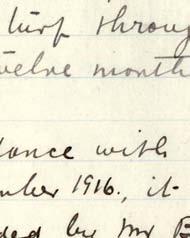 turf throug
twelve month
dance with
mber 1916., it
ded by Mr B